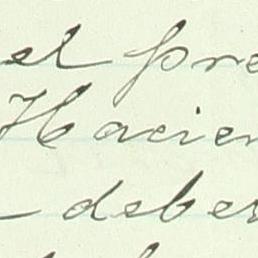 el pre
Hacien
deber